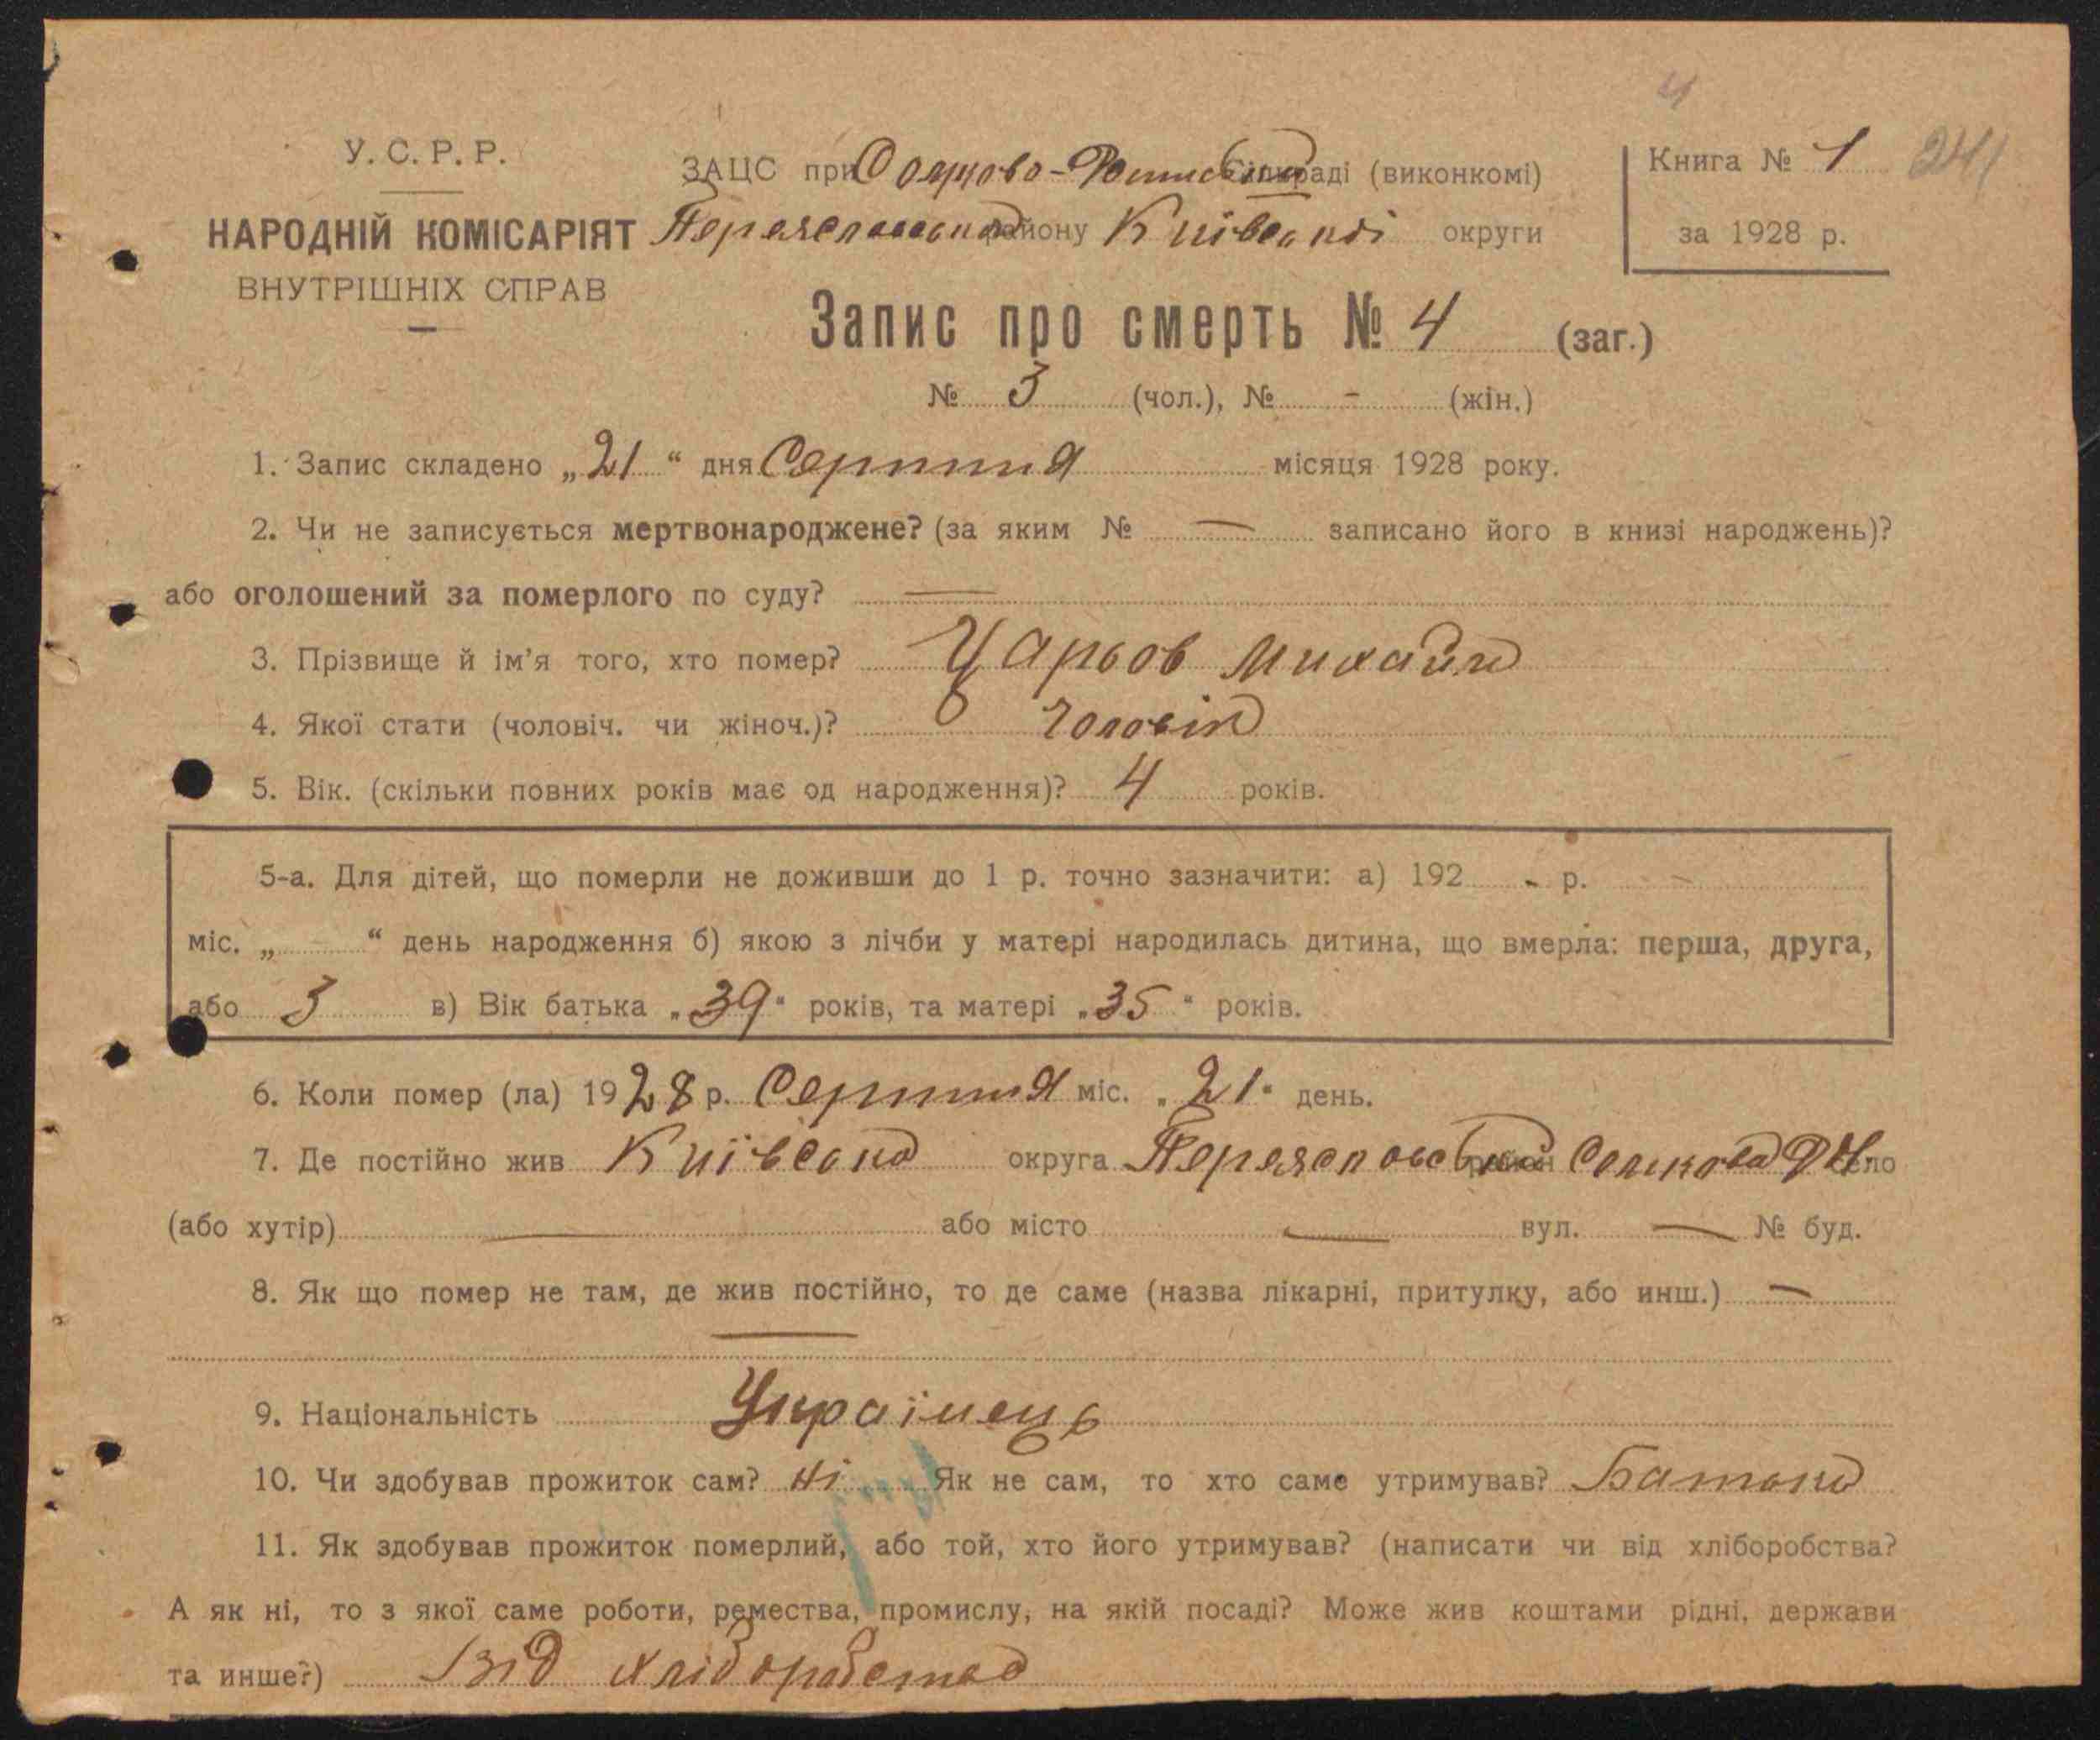 4
У. С. Р. Р.
НАРОДНІЙ КОМІСАРІЯТ
ВНУТРІШНІХ СПРАВ
ЗАЦС при сільраді (виконкомі)
району Київської округи
Книга № 1 241
за 1928 р.
Запис про смерть № 4 (заг.)
№ 3 (чол.), № - (жін.)
1. Запис складено „21“ дня Серпня місяця 1928 року.
2. Чи не записується мертвонароджене? (за яким № — записано його в книзі народжень)?
або оголошений за померлого по суду? —
3. Прізвище й ім'я того, хто помер? Царьов Михайло
4. Якої стати (чоловіч. чи жіноч.)? чоловік
5. Вік. (скільки повних років має од народження)? 4 років.
5-а. Для дітей, що померли не доживши до 1 р. точно зазначити: а) 192 - р. -
міс. „ “ день народження б) якою з лічби у матері народилась дитина, що вмерла: перша, друга,
або 3 в) Вік батька „39“ років, та матері „35“ років.
6. Коли помер (ла) 1928 р. Серпня міс. „21“ день.
7. Де постійно жив Київська округа район село
(або хутір) — або місто — вул. — № буд.
8. Як що помер не там, де жив постійно, то де саме (назва лікарні, притулку, або инш.) —
—
9. Національність Українець
10. Чи здобував прожиток сам? ні Як не сам, то хто саме утримував? Батько
11. Як здобував прожиток померлий, або той, хто його утримував? (написати чи від хліборобства?
А як ні, то з якої саме роботи, ремества, промислу, на якій посаді? Може жив коштами рідні, держави
та инше?) Від хліборобства